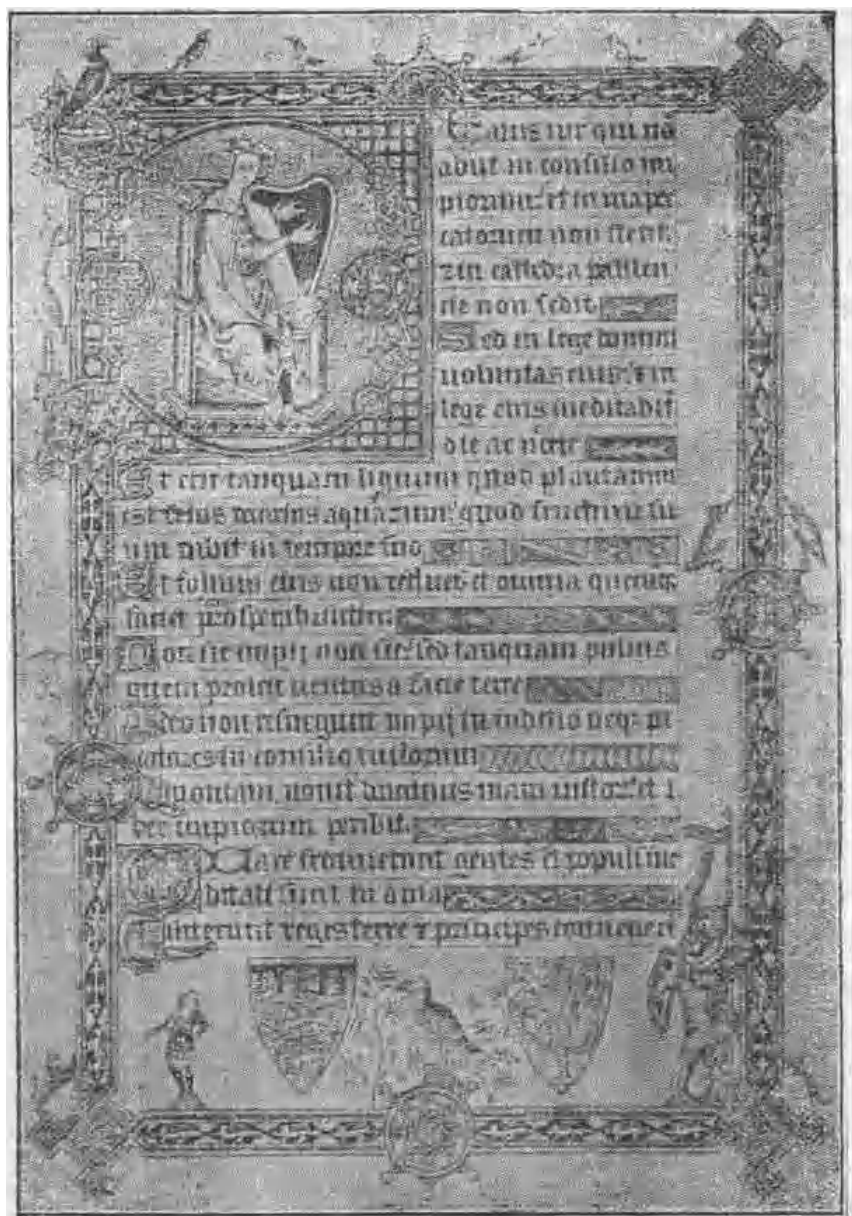 qui nō
abiit in consilio im
piorum et in uia pec
catorum non stetit
⁊ in cathedra pestilen
tie non sedit
Sed in lege domini
uoluntas eius ⁊ in
lege eius meditabit̄
die ac nocte
Et erit tanquam lignum quod plantatum
est secus aquarum quod fructum su
um dabit in tempore suo
Et folium eius non defluet et omnia
faciet prosperabuntur
Non sic impij non sic sed tanquam puluis
quem proicit uentus a facie terre
Ideo non resurgunt impij in iudicio neqꝫ pec
catores in consilio iustorum
Quoniam nouit dominus uiam et i
ter impiorum peribit
gentes et populi me
ditati sunt inania
Astiterunt reges terre ⁊ principes conuenerūt